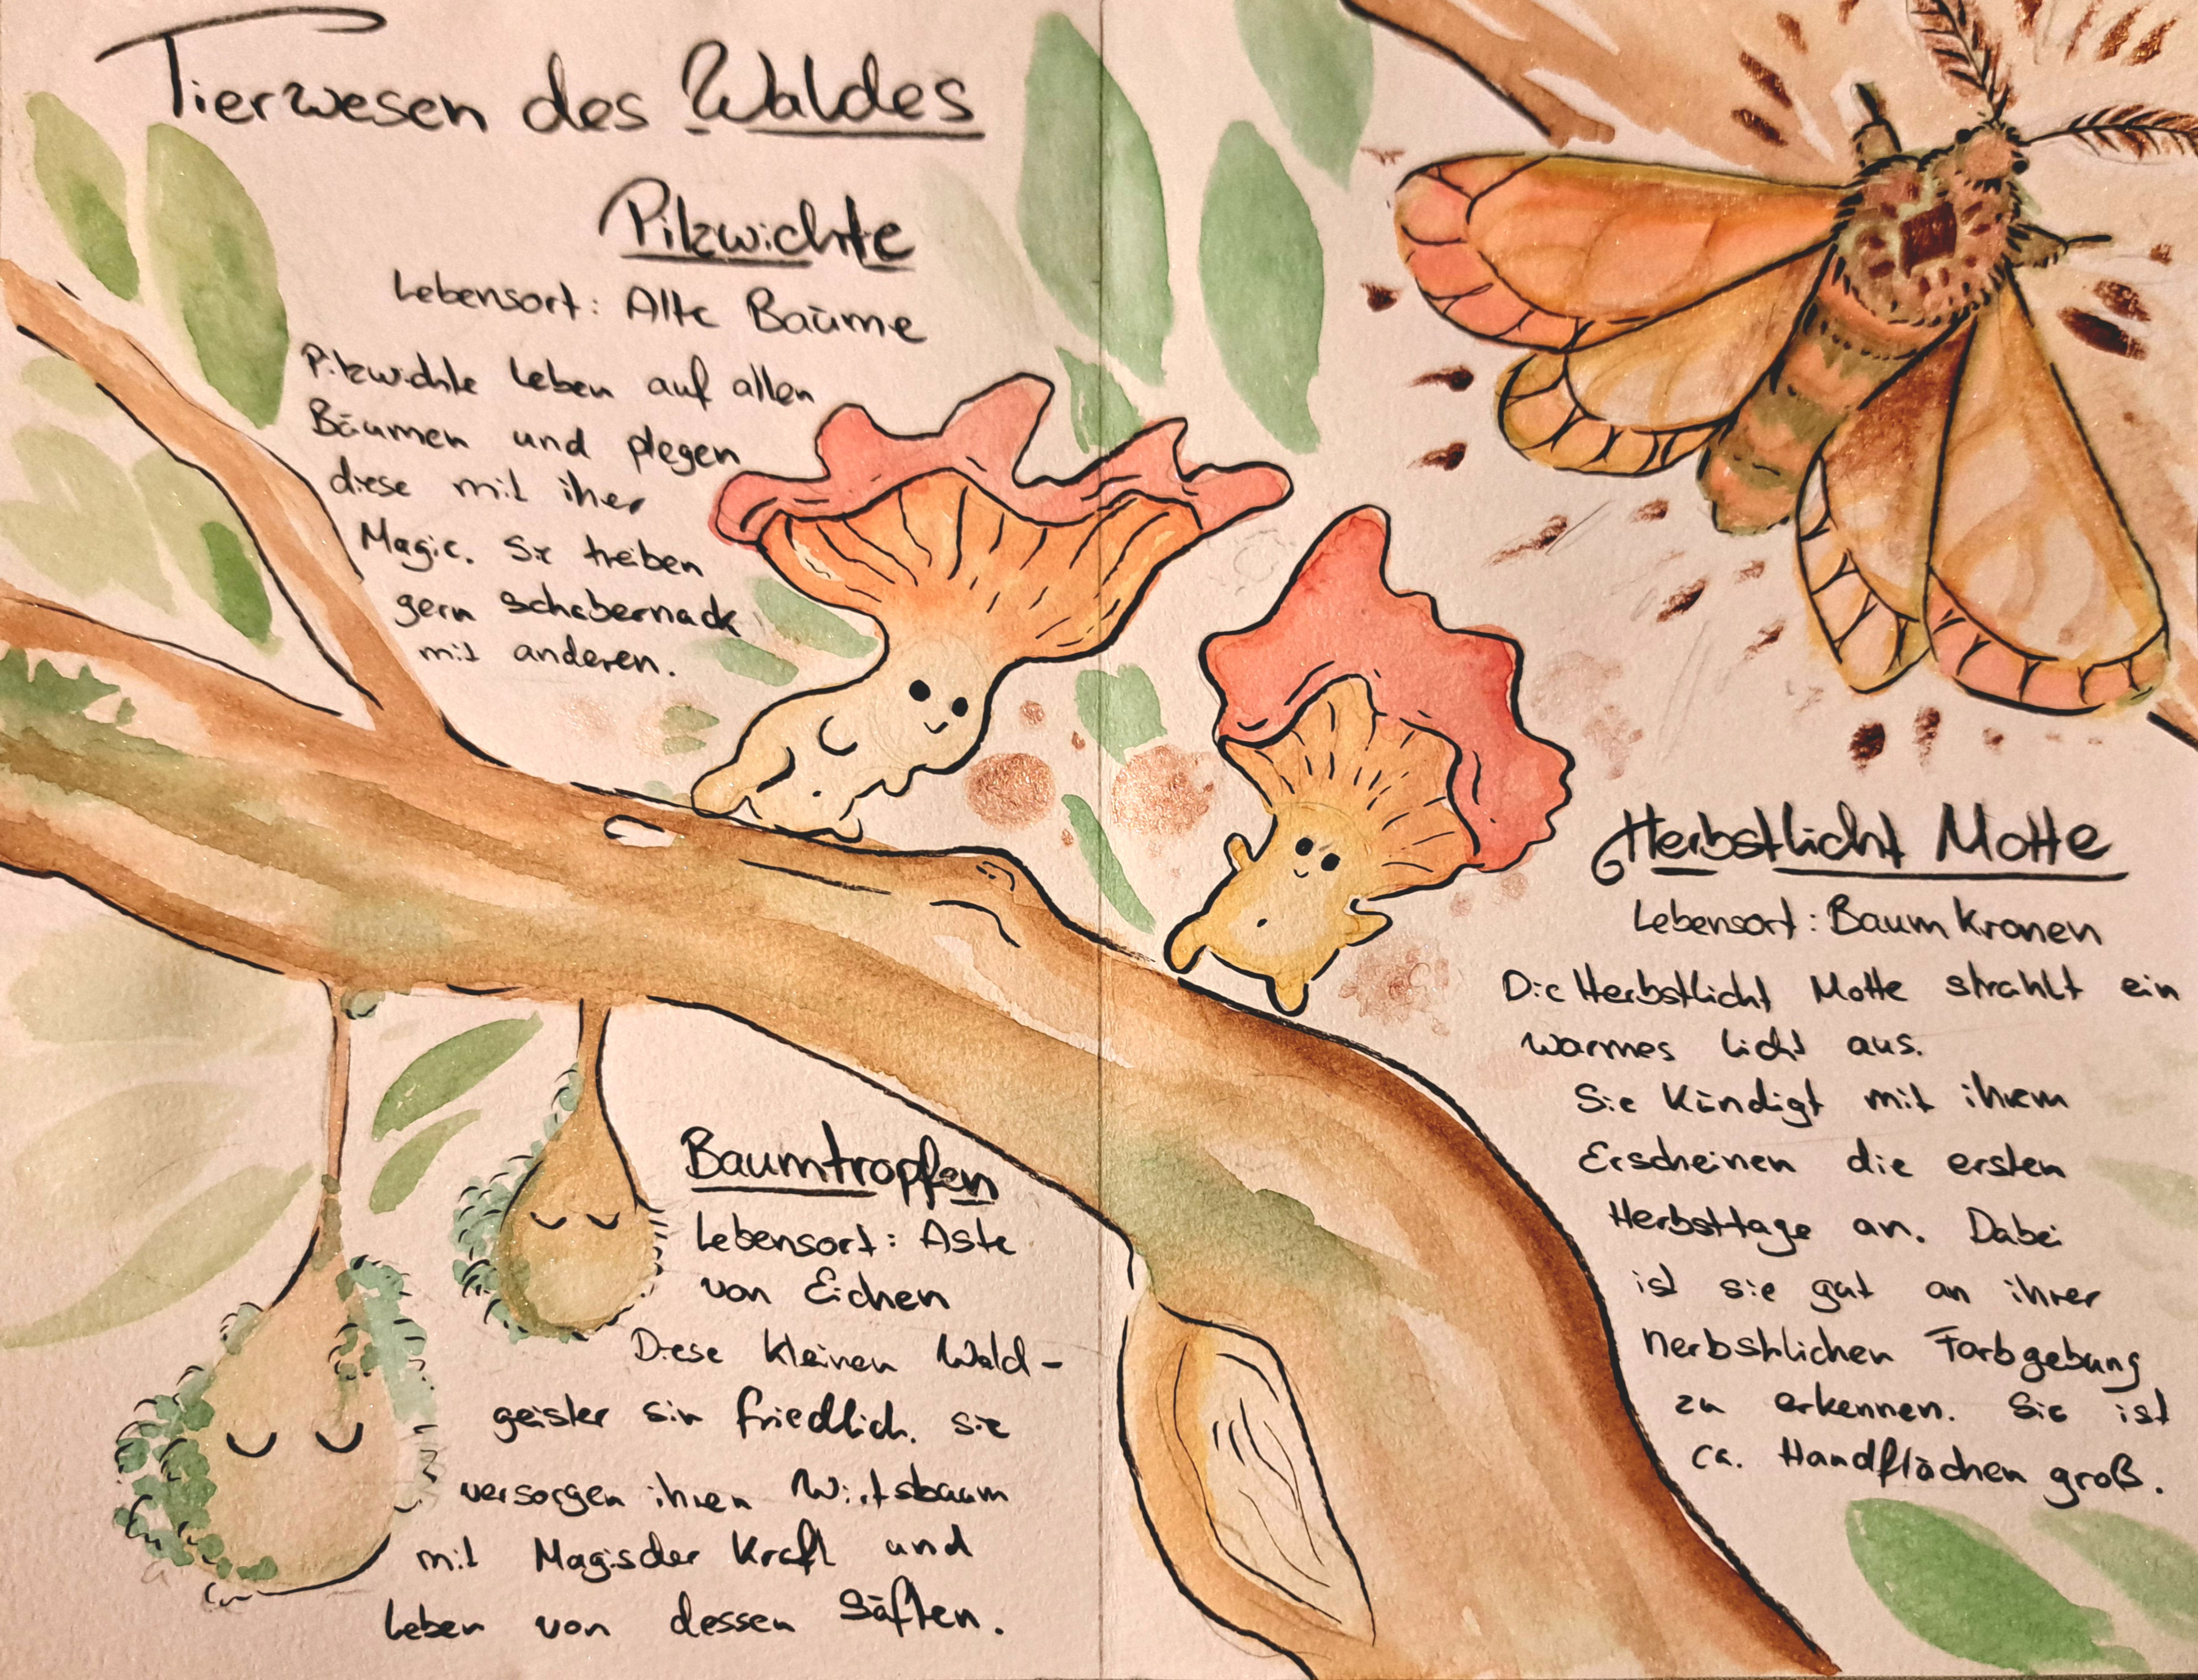 Tierwesen des Waldes
Pilzwichte
Lebensort: Alte Bäume
Pilzwichte leben auf allen
Bäumen und plegen
diese mit iher
Magie. Sie treiben
gern schabernack
mit anderen.
Baumtropfen
Lebensort: Äste
von Eichen
Diese kleinen Wald-
geister sin friedlich. sie
versorgen ihren Wirtsbaum
mit Magischer Kraft und
leben von dessen Säften.
Herbstlicht Motte
Lebensort: Baum Kronen
Die Herbstlicht Motte strahlt ein
warmes licht aus.
Sie Kündigt mit ihrem
Erscheinen die ersten
Herbsttage an. Dabei
ist sie gut an ihrer
herbstlichen Farbgebung
zu erkennen. Sie ist
ca. Handflächen groß.